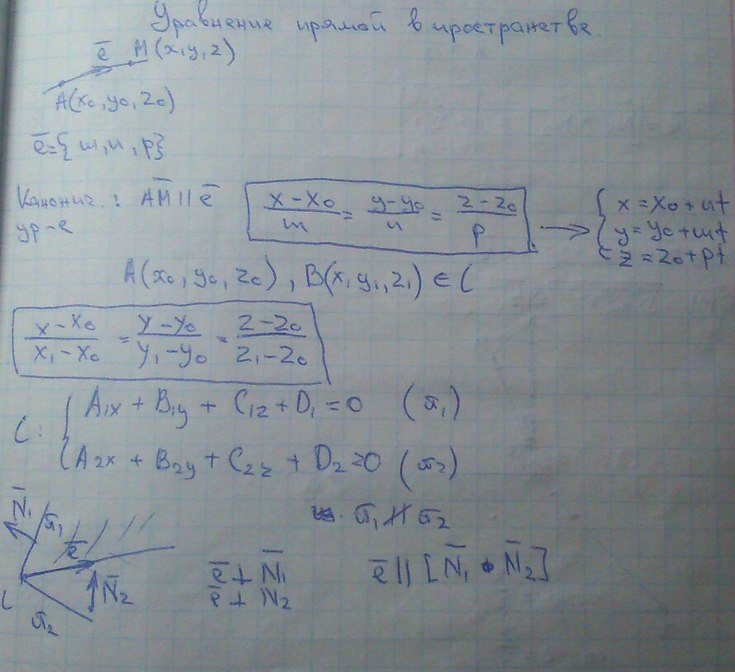 Уравнение прямой в пространстве
ē M(x,y,z)
A(x₀,y₀,z₀)
ē={m,n,p}
Канонич. ур-е : AM || ē (x-x₀)/m = (y-y₀)/n = (z-z₀)/p → { x=x₀+nt
y=y₀+mt
z=z₀+pt
A(x₀,y₀,z₀), B(x₁y₁,z₁) ∈ L
(x-x₀)/(x₁-x₀) = (y-y₀)/(y₁-y₀) = (z-z₀)/(z₁-z₀)
L: { A₁x + B₁y + C₁z + D₁ = 0 (π₁)
A₂x + B₂y + C₂z + D₂=0 (π₂)
π₁ ∦ π₂
N̄₁ π₁ ē
L N̄₂ π₂
ē ⊥ N̄₁
ē ⊥ N₂
ē || [N̄₁ • N̄₂]